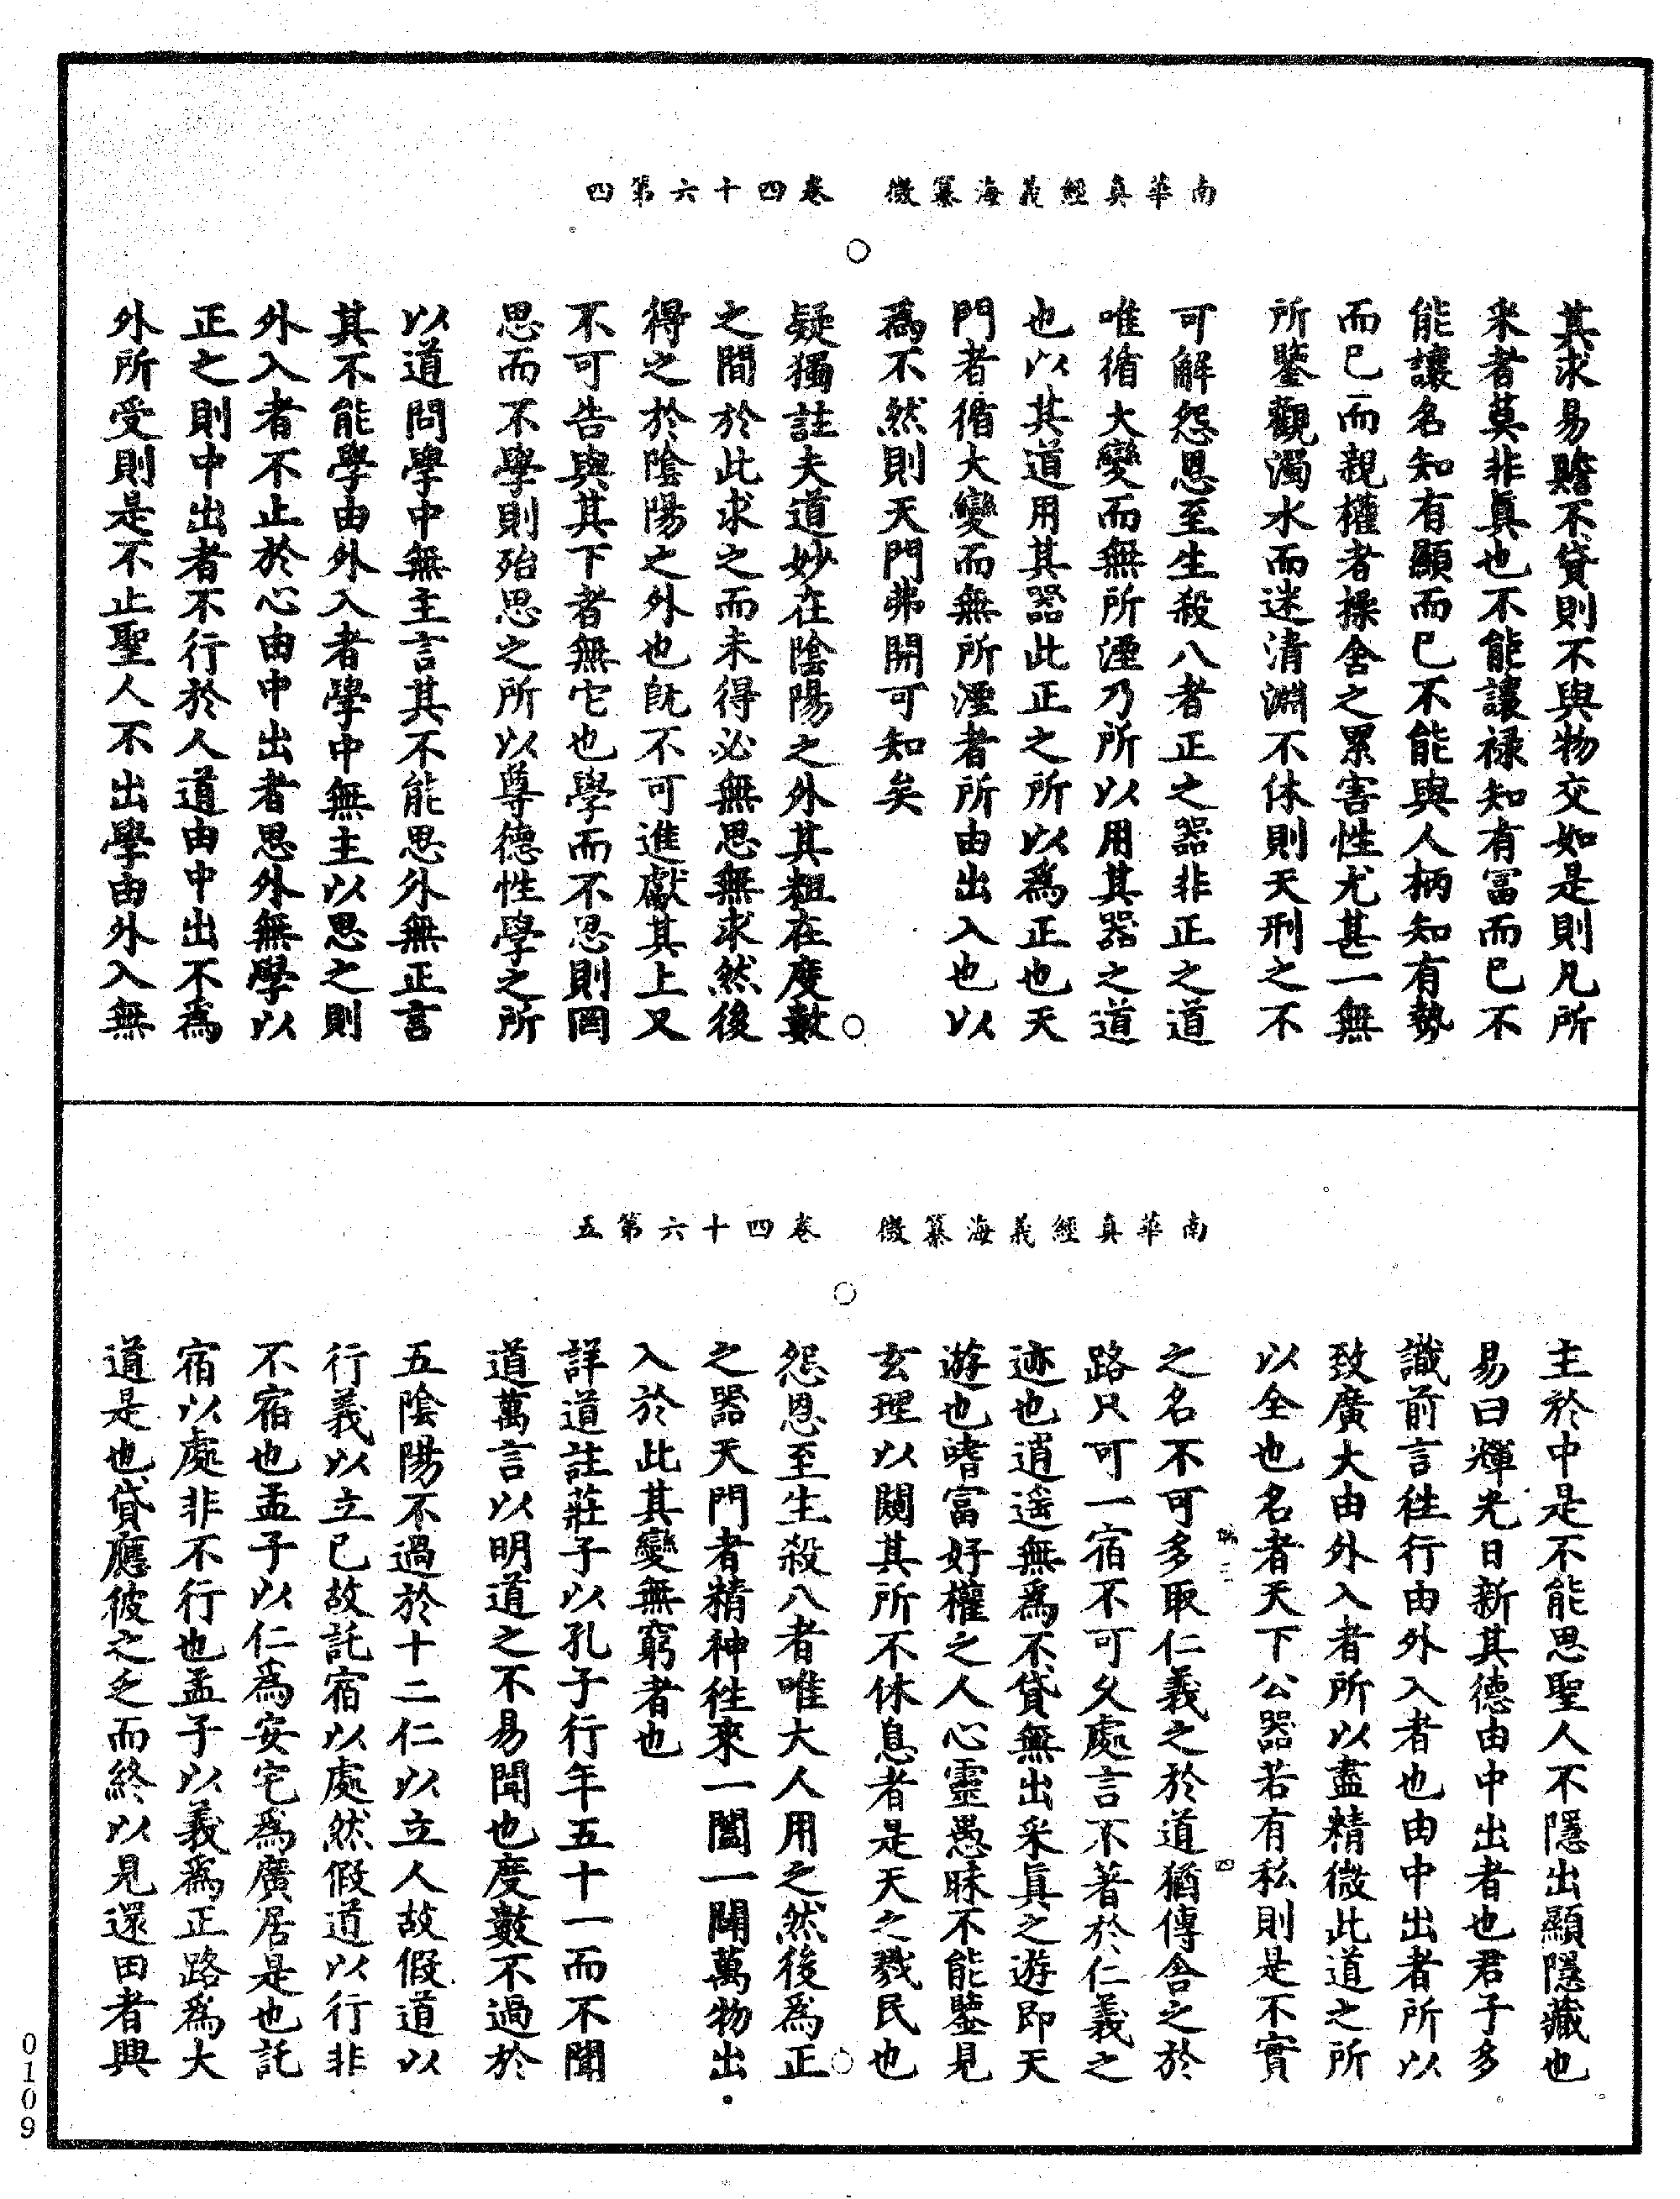 南華真經義海纂微　卷四十六第四
其求易贍不貸則不與物交如是則凡所
采者莫非眞也不能讓祿知有富而已不
能讓名知有顯而已不能與人柄知有勢
而已而親權者操舍之累害性尤甚一無
所鑒觀濁水而迷清淵不休則天刑之不
可解怨恩至生殺八者正之器非正之道
唯循大變而無所湮乃所以用其器之道
也以其道用其器此正之所以爲正也天
門者循大變而無所湮者所由出入也以
爲不然則天門弗開可知矣
疑獨註夫道妙在陰陽之外其粗在度數
之間於此求之而未得必無思無求然後
得之於陰陽之外也既不可進獻其上又
不可告與其下者無它也學而不思則罔
思而不學則殆思之所以尊德性學之所
以道問學中無主言其不能思外無正言
其不能學由外入者學中無主以思之則
外入者不止於心由中出者思外無學以
正之則中出者不行於人道由中出不爲
外所受則是不止聖人不出學由外入無
南華真經義海纂微　卷四十六第五
主於中是不能思聖人不隱出顯隱藏也
易曰輝光日新其德由中出者也君子多
識前言往行由外入者也由中出者所以
致廣大由外入者所以盡精微此道之所
以全也名者天下公器若有私則是不實
之名不可多取仁義之於道猶傳舍之於
路只可一宿不可久處言不著於仁義之
迹也逍遥無爲不貸無出采眞之遊即天
遊也嗜富好權之人心靈愚昧不能鑒見
玄理以闚其所不休息者是天之戮民也
怨恩至生殺八者唯大人用之然後爲正
之器天門者精神往來一闔一闢萬物出
入於此其變無窮者也
詳道註莊子以孔子行年五十一而不聞
道萬言以明道之不易聞也度數不過於
五陰陽不過於十二仁以立人故假道以
行義以立已故託宿以處然假道以行非
不宿也孟子以仁爲安宅爲廣居是也託
宿以處非不行也孟子以義爲正路爲大
道是也貸應彼之乏而終以見還田者興
0109